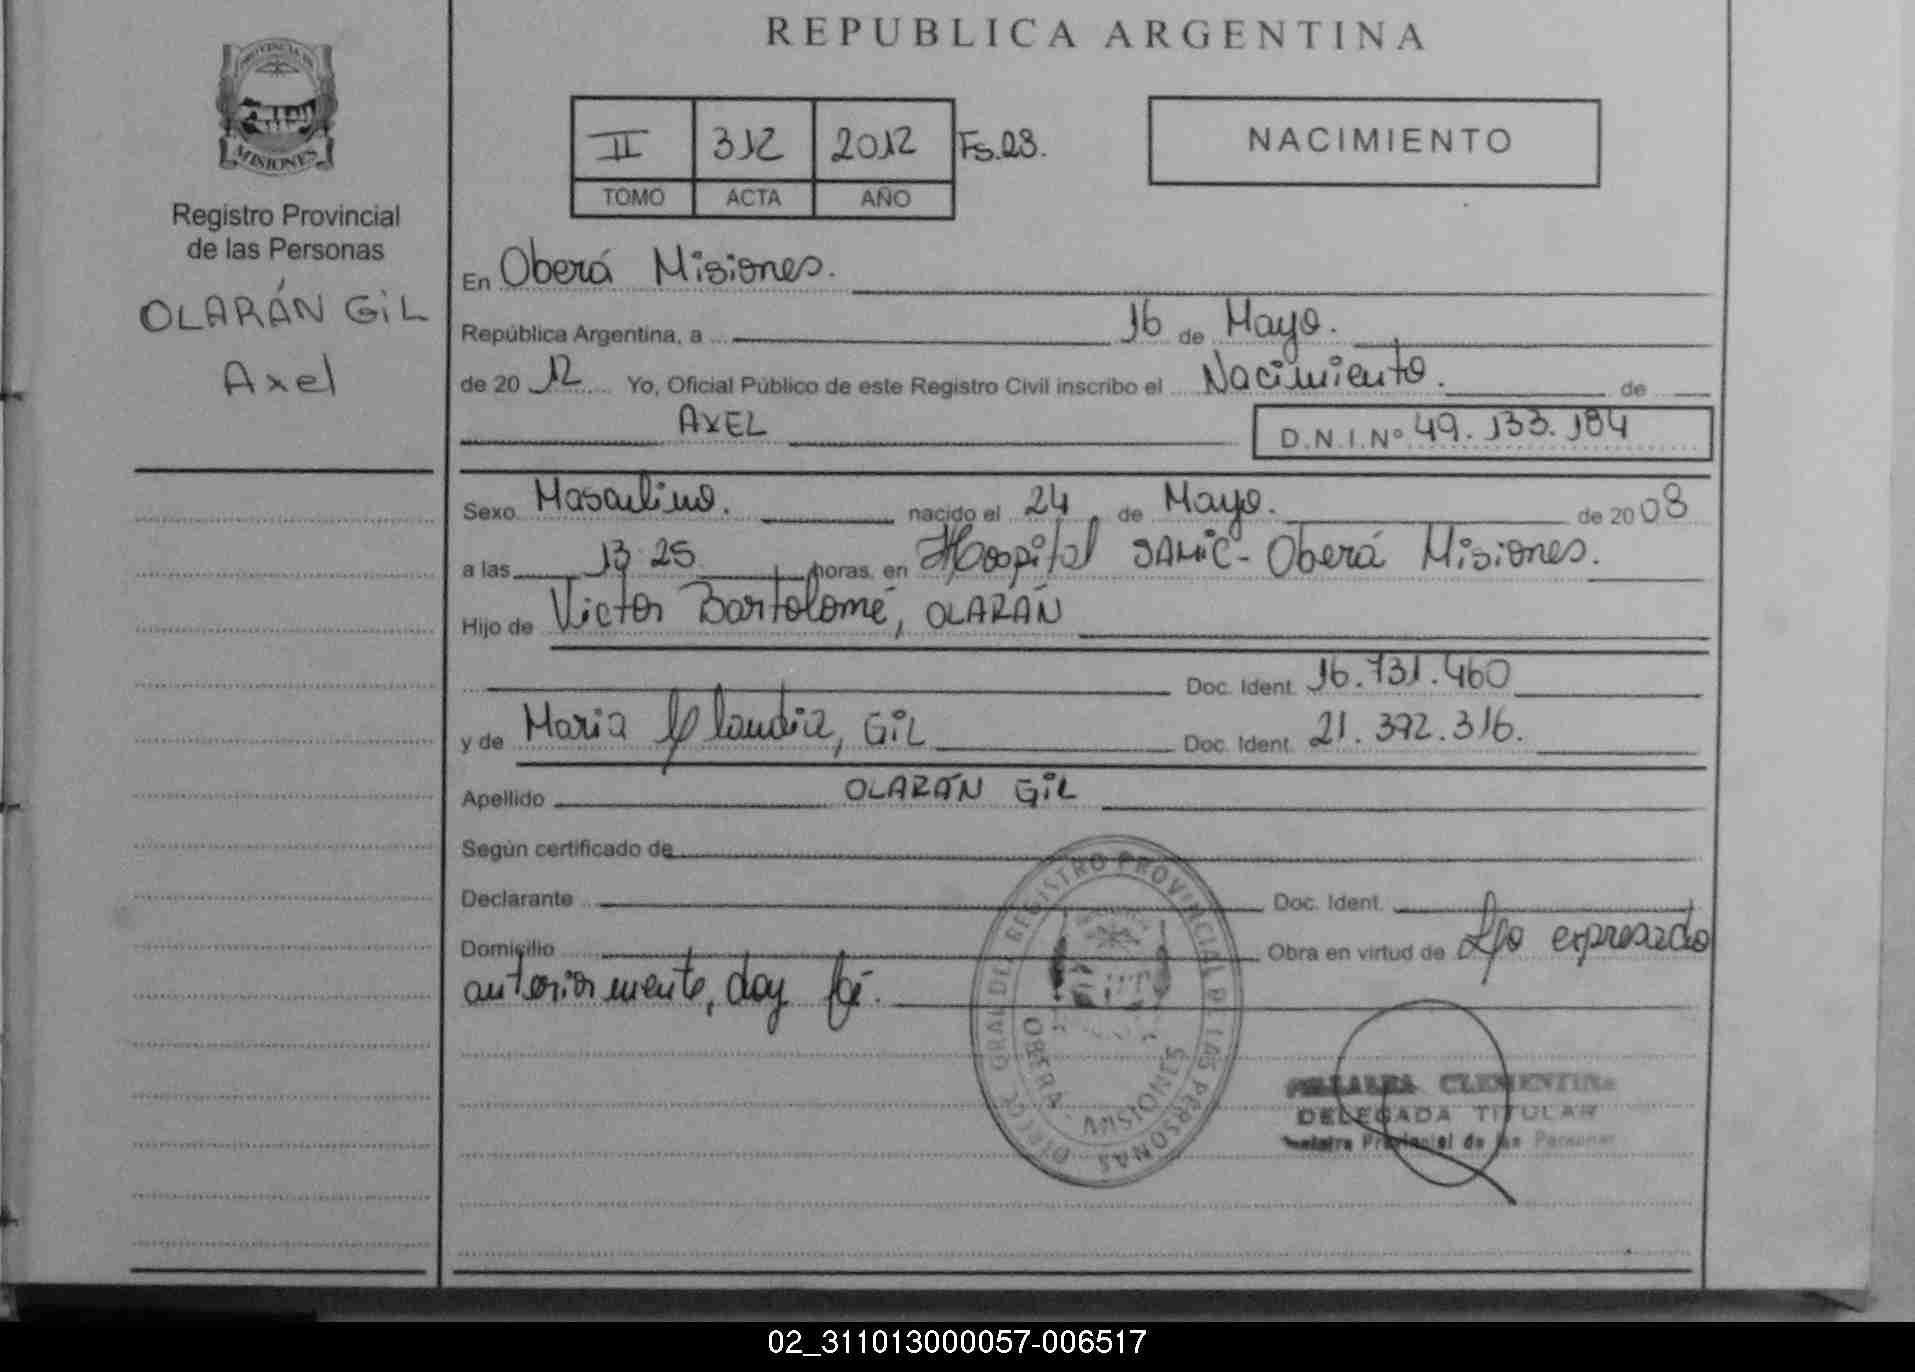 REPUBLICA ARGENTINA
PROVINCIA DE
MISIONES
Registro Provincial
de las Personas
OLARÁN GIL
Axel
II 312 2012 Fs.23.
TOMO ACTA AÑO
NACIMIENTO
En Oberá Misiones.
República Argentina, a 16 de Mayo.
de 20 12 Yo, Oficial Público de este Registro Civil inscribo el Nacimiento. de
AXEL D.N.I.Nº 49.133.184
Sexo Masculino. nacido el 24 de Mayo. de 2008
a las 13 25 horas, en Hospital SAMIC - Oberá Misiones.
Hijo de Victor Bartolomé, OLARÁN
Doc. Ident. 16.731.460
y de Maria Claudia, GIL Doc. Ident. 21.372.316.
Apellido OLARÁN GIL
Según certificado de
Declarante Doc. Ident.
Domicilio Obra en virtud de Lo expresado
anteriormente, doy fé.
DIRECC. GRAL. DEL REGISTRO PROVINCIAL DE LAS PERSONAS
OBERA - MISIONES
CLEMENTINA
DELEGADA TITULAR
Provincial de las Personas
02_311013000057-006517